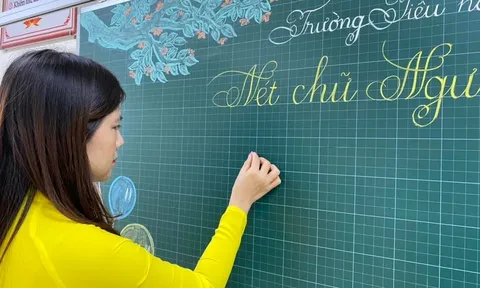 Trường Tiểu
Nét chữ Ngư